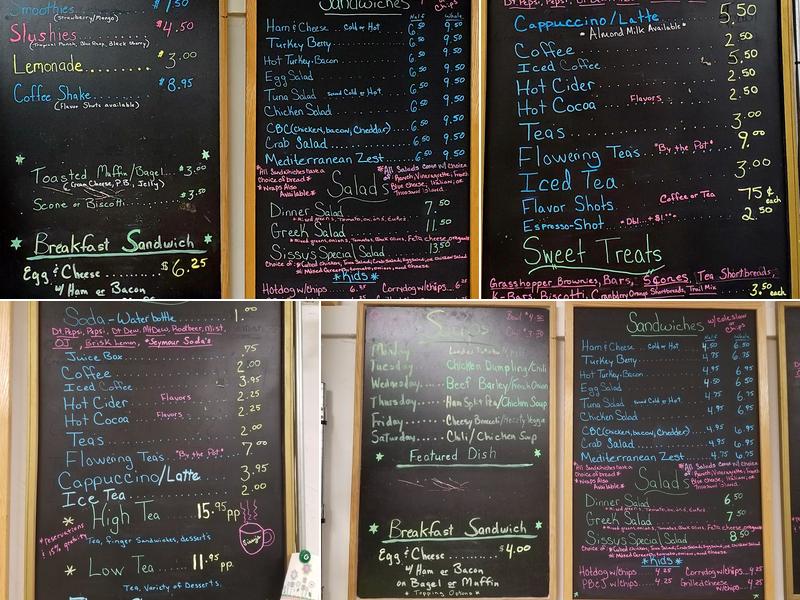 Smoothies $1.50
(Strawberry/Mango)
Slushies $4.50
Lemonade........ $3.00
Coffee Shake.... $8.95
(Flavor Shots available)
Toasted Muffin/Bagel... $3.00
(Cream Cheese, P.B., Jelly)
Scone or Biscotti.... $3.50
Breakfast Sandwich
Egg & Cheese ...... $6.25
w/ Ham or Bacon
Sandwiches
Half Whole
Ham & Cheese Cold or Hot 6.50 9.50
Turkey Berry 6.50 9.50
Hot Turkey Bacon 6.50 9.50
Egg Salad 6.50 9.50
Tuna Salad Cold or Hot 6.50 9.50
Chicken Salad 6.50 9.50
CBC (Chicken, bacon, Cheddar) 6.50 9.50
Crab Salad 6.50 9.50
Mediterranean Zest 6.50 9.50
*All Sandwiches have a
choice of bread*
*Wraps Also
Available*
*All Salads come w/ choice
of: Ranch, Vinaigrette, French
Blue cheese, Italian, or
Thousand Island.
Salads
Dinner Salad 7.50
Greek Salad 11.50
Sissy's Special Salad 13.50
*Kids*
Hotdog w/chips Corndog w/chips
Cappuccino/Latte 5.50
*Almond Milk Available*
Coffee 2.50
Iced Coffee 5.50
Hot Cider 2.50
Hot Cocoa Flavors 2.50
Teas 3.00
Flowering Teas "By the Pot" 9.00
Iced Tea 3.00
Flavor Shots Coffee or Tea 75¢ each
Espresso-Shot 2.50
Sweet Treats
Grasshopper Brownies, Bars, Scones, Tea Shortbreads,
K-Bars, Biscotti, Cranberry Orange Shortbreads, Trail Mix 3.50 each
Soda - Water bottle 1.00
Dt. Pepsi, Pepsi, Dt. Dew, Mt Dew, Rootbeer, Mist,
OJ, Brisk Lemon, *Seymour Soda's
Juice Box .75
Coffee 2.00
Iced Coffee 3.95
Hot Cider Flavors 2.25
Hot Cocoa Flavors 2.25
Teas 2.00
Flowering Teas "By the Pot" 7.00
Cappuccino/Latte 3.95
Ice Tea 2.00
High Tea 15.95 pp
*reservations
& 15% gratuity
Tea, finger Sandwiches, desserts
Low Tea 11.95 pp.
Tea, Variety of Desserts,
Soups
Monday
Tuesday Chicken Dumpling/Chili
Wednesday Beef Barley/French Onion
Thursday Ham Split Pea/Chicken Soup
Friday Cheesy Broccoli/Hearty Veggie
Saturday Chili/Chicken Soup
Featured Dish
Breakfast Sandwich
Egg & Cheese $4.00
w/ Ham or Bacon
on Bagel or Muffin
*Topping Options*
Sandwiches w/ coleslaw or chips
Half Whole
Ham & Cheese Cold or Hot 4.50 6.50
Turkey Berry 4.75 6.75
Hot Turkey Bacon 4.95 6.95
Egg Salad 4.50 6.50
Tuna Salad Cold or Hot 4.75 6.75
Chicken Salad 4.95 6.95
CBC (Chicken, bacon, Cheddar) 4.95 6.95
Crab Salad 4.95 6.95
Mediterranean Zest 4.75 6.75
*All Sandwiches have a
choice of bread*
*Wraps Also
Available*
*All Salads come w/ choice
of: Ranch, Vinaigrette, French
Blue cheese, Italian, or
Thousand Island.
Salads
Dinner Salad 6.50
Greek Salad 7.50
Sissy's Special Salad 8.50
*Kids*
Hotdog w/chips 4.25 Corndog w/chips 4.25
PB&J w/chips 4.25 Grilled Cheese w/chips 4.25